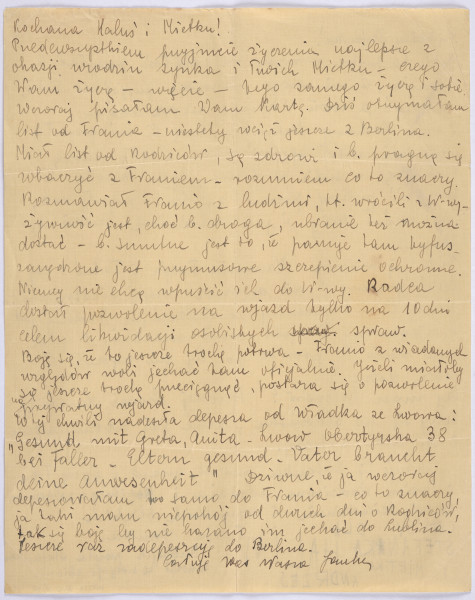 Kochana Haluś i Mietku!
Przedewszystkiem przyjmcie życzenia najlepsze z
okazji urodzin synka i Twoich Mietku – czego
Wam życzę – wiecie – tego samego życzę i sobie.
Wczoraj pisałam Wam kartę. Dziś otrzymałam
list od Frania – niestety wciąż jeszcze z Berlina.
Miał list od Rodziców, są zdrowi i b. pragną się
zobaczyć z Franiem – rozumiem co to znaczy.
Rozmawiał Franio z ludźmi, kt. wrócili z W-wy –
żywność jest, choć b. droga, ubranie też można
dostać – b. smutne jest to, iż panuje tam tyfus –
zarządzone jest przymusowe szczepienie ochronne.
Niemcy nie chcą wpuścić ich do W-wy. Radca
dostał pozwolenie na wjazd tylko na 10 dni
celem likwidacji osobistych spraw.
Boję się, iż to jeszcze trochę potrwa – Franio z wiadomych
względów woli jechać tam oficjalnie. Jeżeli miałoby
się jeszcze trochę przeciągnąć, postara się o pozwolenie
na prywatny wjazd.
W tej chwili nadeszła depesza od Władka ze Lwowa:
"Gesund mit Greta, Anita – Lwow obertynska 38
bei Faller – Eltern gesund – Vater braucht
deine Anwesenheit" Dziwne, iż ja wczoraj
depeszowałam to samo do Frania – co to znaczy,
ja taki mam niepokój od dwuch dni o Rodziców,
tak się boję by nie kazano im jechać do Lublina.
Jeszcze raz zadepeszuję do Berlina.
Całuję Was Wasza